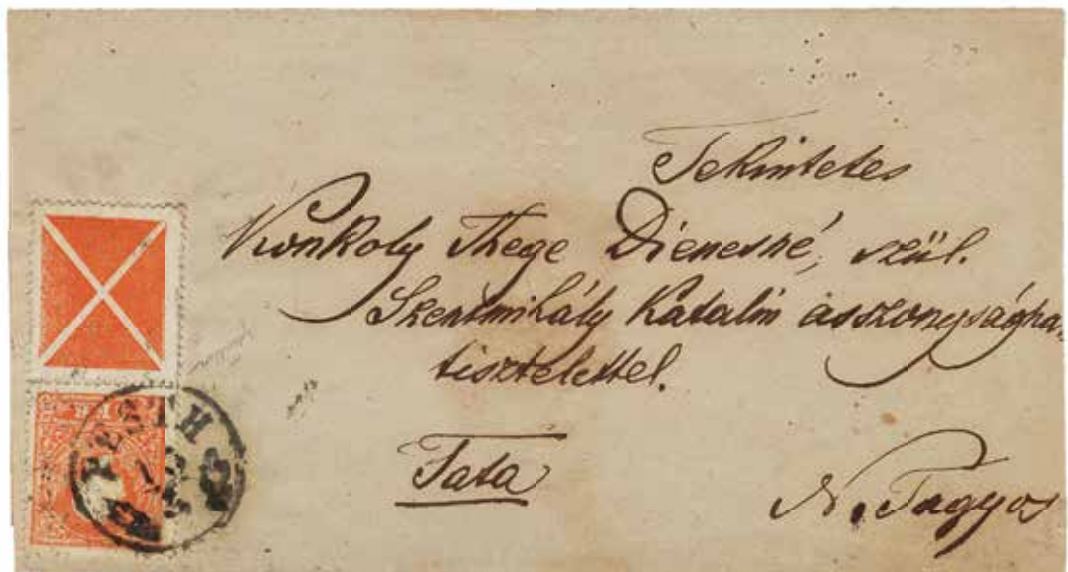 Tekintetes
Konkoly Thege Dienesné, szül.
Szentmihály Katalin asszonyságna
tisztelettel.
Tata
N. Tagyos
PESTH